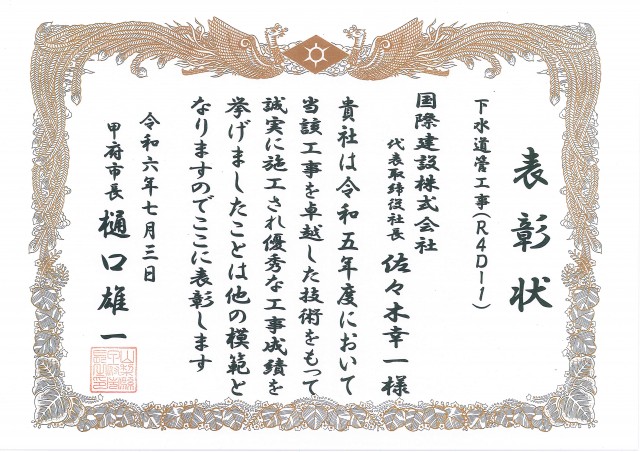 表彰状
下水道管工事(R4D-1)
国際建設株式会社
代表取締役社長 佐々木幸一様
貴社は令和五年度において
当該工事を卓越した技術をもって
誠実に施工され優秀な工事成績を
挙げましたことは他の模範と
なりますのでここに表彰します
令和六年七月三日
甲府市長 樋口雄一